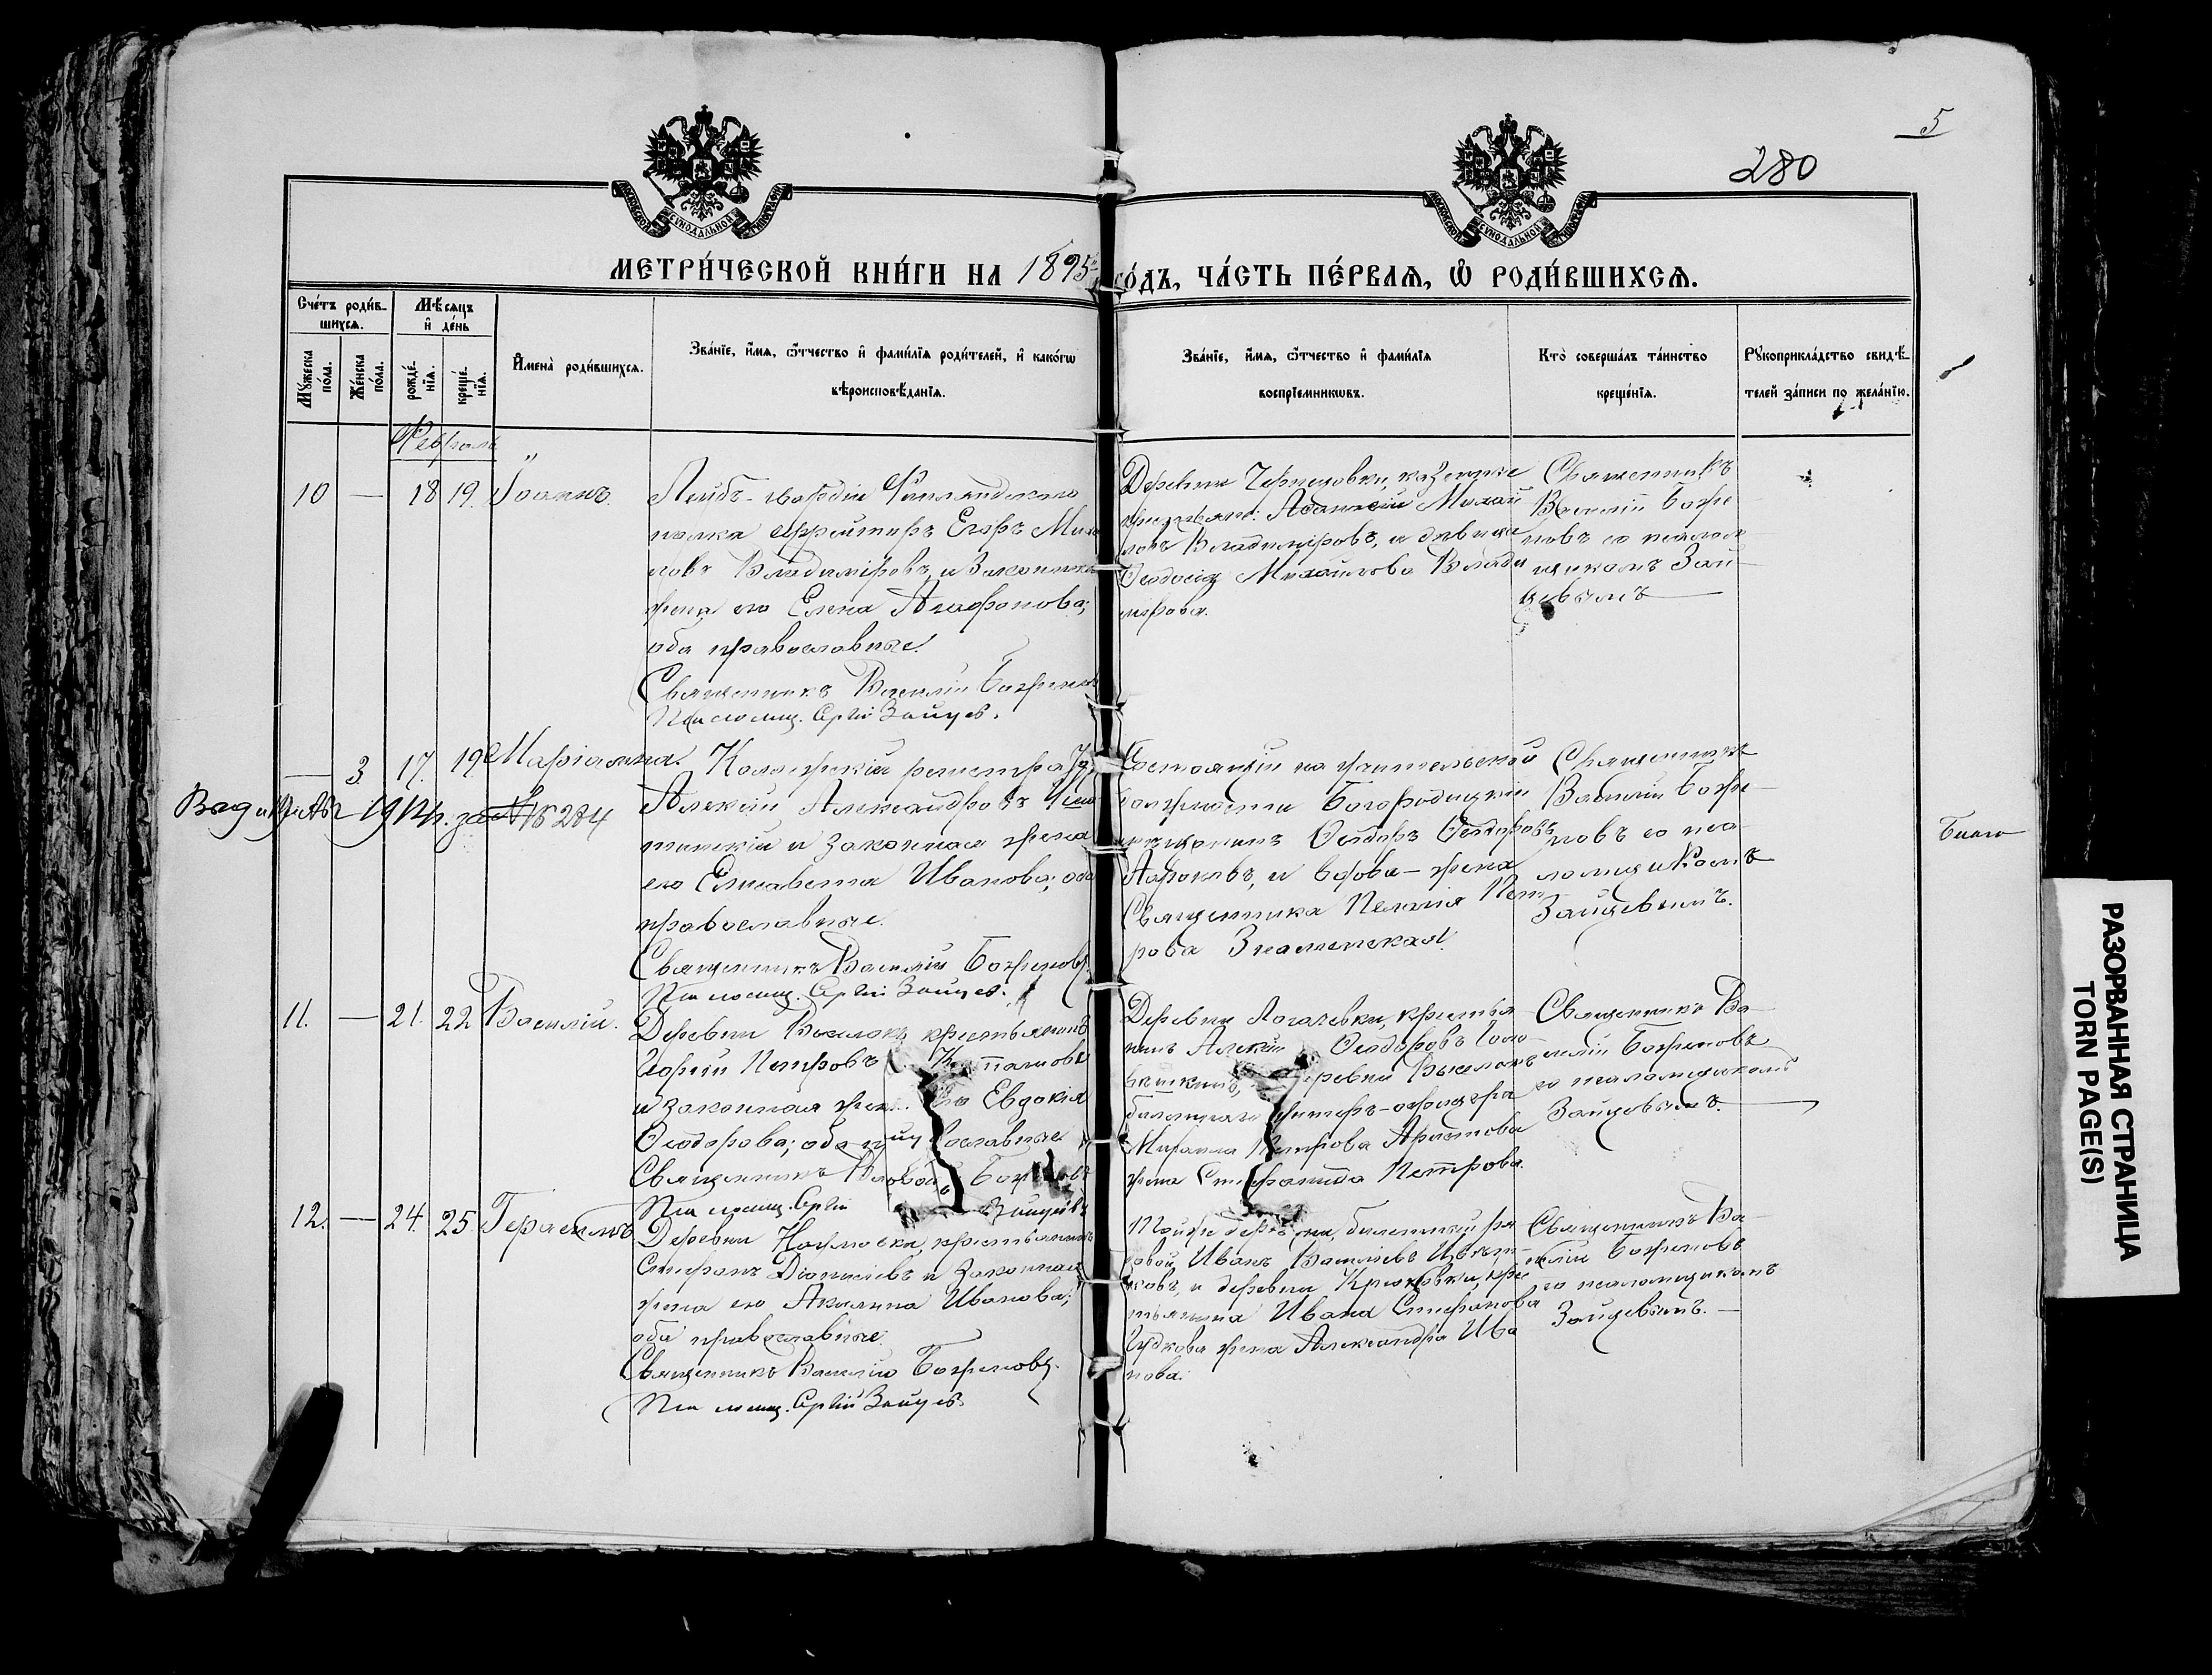 5
280
МЕТРИ́ЧЕСКОЙ КНИ́ГИ НА 1895 го́дъ, ЧА́СТЬ ПЕ́РВАѦ, Ѡ҆ РОДИ́ВШИХСѦ.
Сче́тъ роди́в-
шихсѧ.
Мꙋ́жеска по́ла.
Же́нска по́ла.
Мѣ́сѧцъ и҆ де́нь
рожде́-нїѧ.
креще́-нїѧ.
И҆мена̀ роди́вшихсѧ.
Зва́нїе, и҆́мѧ, ѻ҆́тчество и҆ фами́лїѧ роди́телей, и҆ како́гѡ
вѣроисповѣ́данїѧ.
Зва́нїе, и҆́мѧ, ѻ҆́тчество и҆ фами́лїѧ
воспрїе́мникѡвъ.
Кто̀ соверша́лъ та́инство
креще́нїѧ.
Рꙋкоприкла́дство свидѣ́-
телей за́писи по жела́нїю.
Февраль
10 — 18 19. Іоаннъ.
Лейбъ-гвардіи Финляндскаго
полка ефрейторъ Егоръ Михай
ловъ Владиміровъ, и законная
жена его Елена Агафонова;
оба православные.
Священникъ Василій Боженовъ
Псаломщ. Сергій Зайцев.
казенные
крестьяне: Аѳанасій Михай
ловъ Владиміровъ, и дѣвица
Ѳеодосія Михайлова Влади
мірова.
Священникъ
Василій Боже
новъ со псалом
щикомъ Зай
цевымъ
— 3 17. 19 Маріамна.
Коллежскій регистра
Алексѣй Александровъ
и законная жена
его Елисавета Иванова; оба
православные.
Священникъ Василій Боженовъ.
Псаломщ. Сергій Зайцев.
Состоящій на учительской
должности Богородицкій
мѣщанинъ Ѳеодоръ Ѳеодоровъ
и вдова-жена
Священника Пелагія Пет
рова Знаменская.
Священникъ
Василій Боже
новъ со пса
ломщикомъ
Зайцевымъ.
№ 284
11. — 21. 22 Василій.
Деревни крестьянинъ
Петровъ
и законная жена его Евдокія
Ѳеодорова; оба православные
Священникъ Боженовъ
Псаломщ. Сергій Зайцевъ
Деревни крестья
нинъ Алексѣй Ѳеодоровъ
деревни
унтеръ-офицера
Петрова
жена Стефанида Петрова.
Священникъ Ва
силій Боженовъ
со псаломщикомъ
Зайцовымъ.
12. — 24. 25. Герасимъ
Деревни крестьянинъ
Стефанъ Діонисіевъ и законная
жена его Акилина Иванова;
оба православные.
Священникъ Василій Боженовъ.
Псаломщ. Сергій Зайцев.
Той же деревни, билетный ря
довой Иванъ Васильевъ
ковъ, и деревни Крюковки, кре
стьянина Ивана Стефанова
жена Александра Ива
нова.
Священникъ Ва
силій Боженовъ
со псаломщикомъ
Зайцевымъ.
РАЗОРВАННАЯ СТРАНИЦА
TORN PAGE(S)